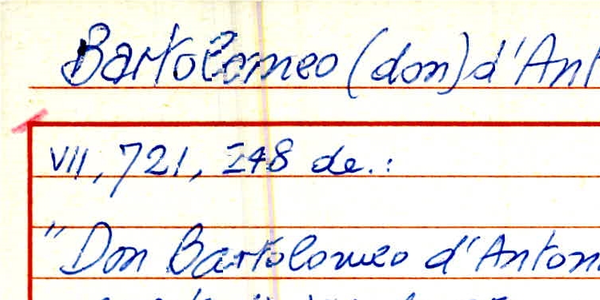 Bartolomeo (don) d'Ant
VII, 721, 248 de.:
"Don Bartolomeo d'Anton